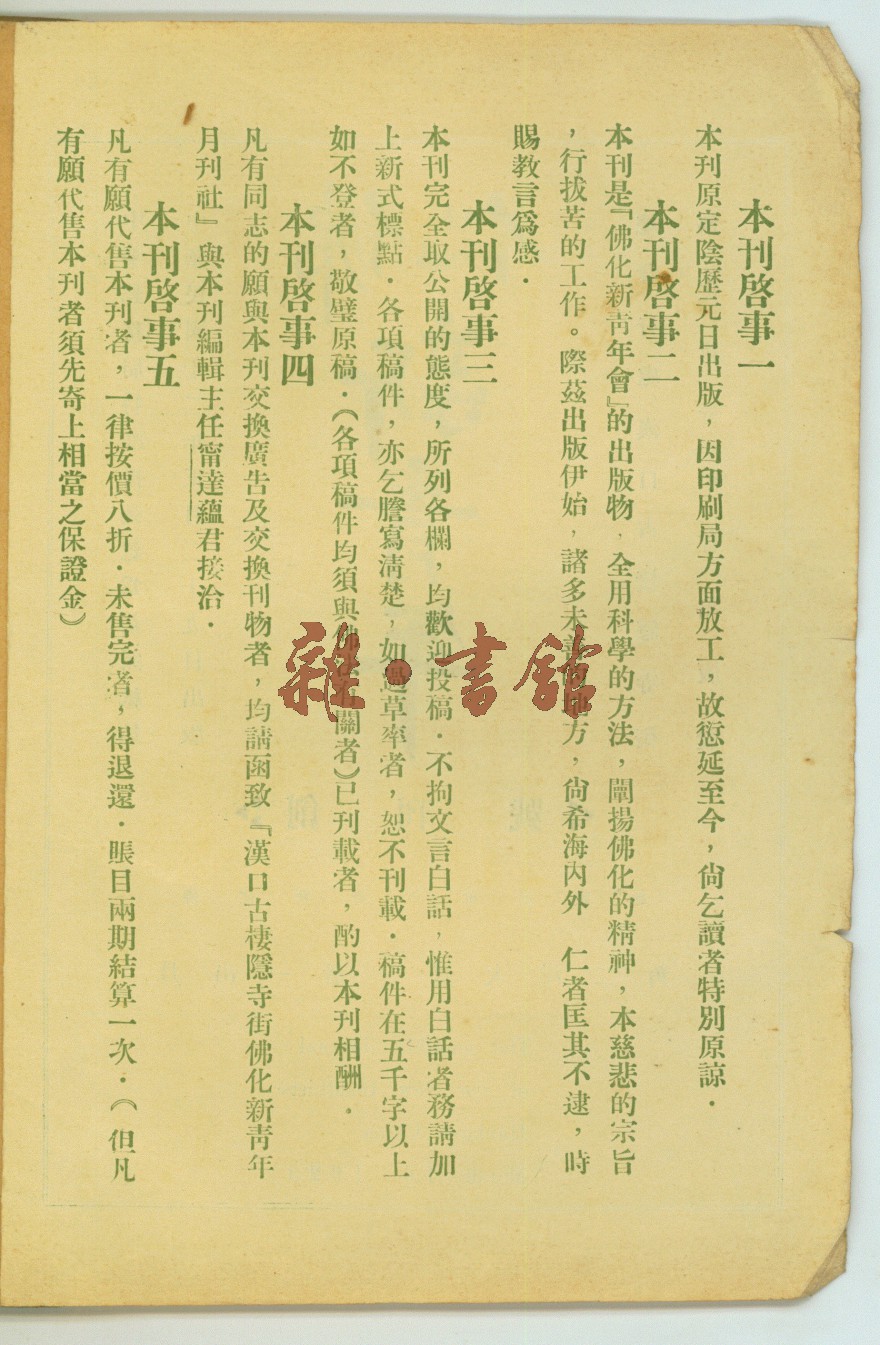 本刊啓事一
本刊原定陰歷元日出版，因印刷局方面放工，故愆延至今，尙乞讀者特別原諒．
本刊啓事二
本刊是『佛化新靑年會』的出版物，全用科學的方法，闡揚佛化的精神，本慈悲的宗旨
，行拔苦的工作。際茲出版伊始，諸多未善的地方，尙希海內外　仁者匡其不逮，時
賜教言爲感．
本刊啓事三
本刊完全取公開的態度，所列各欄，均歡迎投稿．不拘文言白話，惟用白話者務請加
上新式標點．各項稿件，亦乞謄寫淸楚，如過草率者，恕不刊載．稿件在五千字以上
如不登者，敬璧原稿．（各項稿件均須與佛法有關者）已刊載者，酌以本刊相酬．
本刊啓事四
凡有同志的願與本刊交換廣告及交換刊物者，均請函致『漢口古棲隱寺街佛化新靑年
月刊社』與本刊編輯主任甯達蘊君接洽．
本刊啓事五
凡有願代售本刊者，一律按價八折．未售完者，得退還．賬目兩期結算一次．（但凡
有願代售本刊者須先寄上相當之保證金）
雜·書館